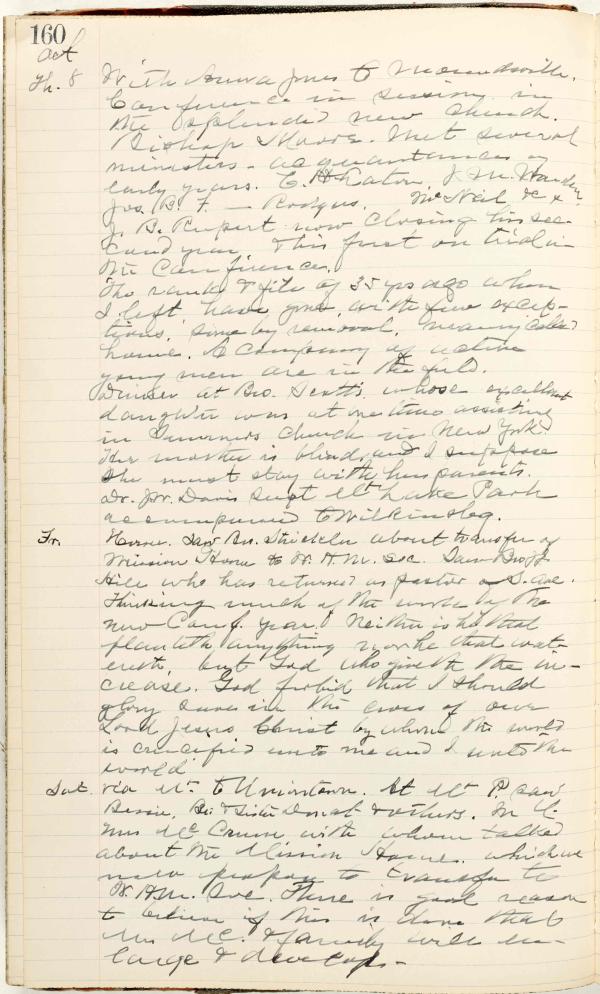 160
Oct
Th. 8 With Anna Jones to Moundsville.
Conference in session in
the splendid new church.
Bishop Moore. Met several
ministers - acquaintances of
early years. C. H. Eaton, J. M. Warden
Jos. B. F. — Rodgers. McNeil & x
J. B. Rupert now closing his sec-
ond year this first on trial in
the Conference.
The rank & file of 35 yrs ago when
I left have gone, with few excep-
tions, some by removal, many called
home. A company of active
young men are in the field.
Dinner at Bro. Scott's whose excellent
daughter was at one time assisting
in Governors Church in New York.
Her mother is blind, and I suppose
she must stay with her parents.
Dr. J.W. Davis Supt Mt Lake Park
accompanied to Wilkinsbg.
Fr. Home. Saw Bro. Strickler about transfer of
Mission Home to W. H. M. Soc. Saw Bro
Hill who has returned as pastor S. Ave.
Thinking much of the work of the
new Conf. year. Neither is he that
planteth anything nor he that wat-
ereth, but God who giveth the in-
crease. God forbid that I should
glory save in the cross of our
Lord Jesus Christ by whom the world
is crucified unto me and I unto the
world
Sat. via Mt. to Uniontown. At Mt P. saw
Bessie, Bro & Sister & others. In U.
Mrs McCrum with whom talked
about the Mission Home, which we
now propose to transfer to
W. H. M. Soc. There is good reason
to believe if this is done that
Mrs Mc. & family will en-
large & develop -